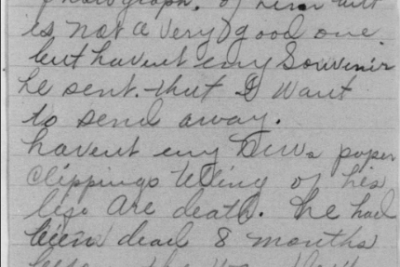 Photograph. of him but
is not a very good one.
but havent eny Souvenir
he sent. that I want
to send away.
havent eny News paper
clippings telling of his
life are death. he had
been dead 8 months